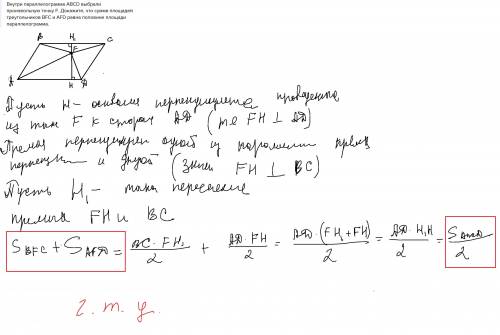 Внутри параллелограмма ABCD выбрали
произвольную точку F. Докажите, что сумма площадей
треугольников BFC и AFD равна половине площади
параллелограмма.
B H₁ C
F
A H D
Пусть H - основание перпендикуляра проведенна
из точки F к стороне AD (те FH ⊥ AD)
Прямая перпендикулярн одной из параллельн прямых
перпенд и другой (значит FH ⊥ BC)
Пусть H₁ - точка пересечение
прямых FH и BC
S BFC + S AFD = BC · FH₁ / 2 + AD · FH / 2 = AD · (FH₁ + FH) / 2 = AD · H₁H / 2 = S ABCD / 2
ч. т. д.